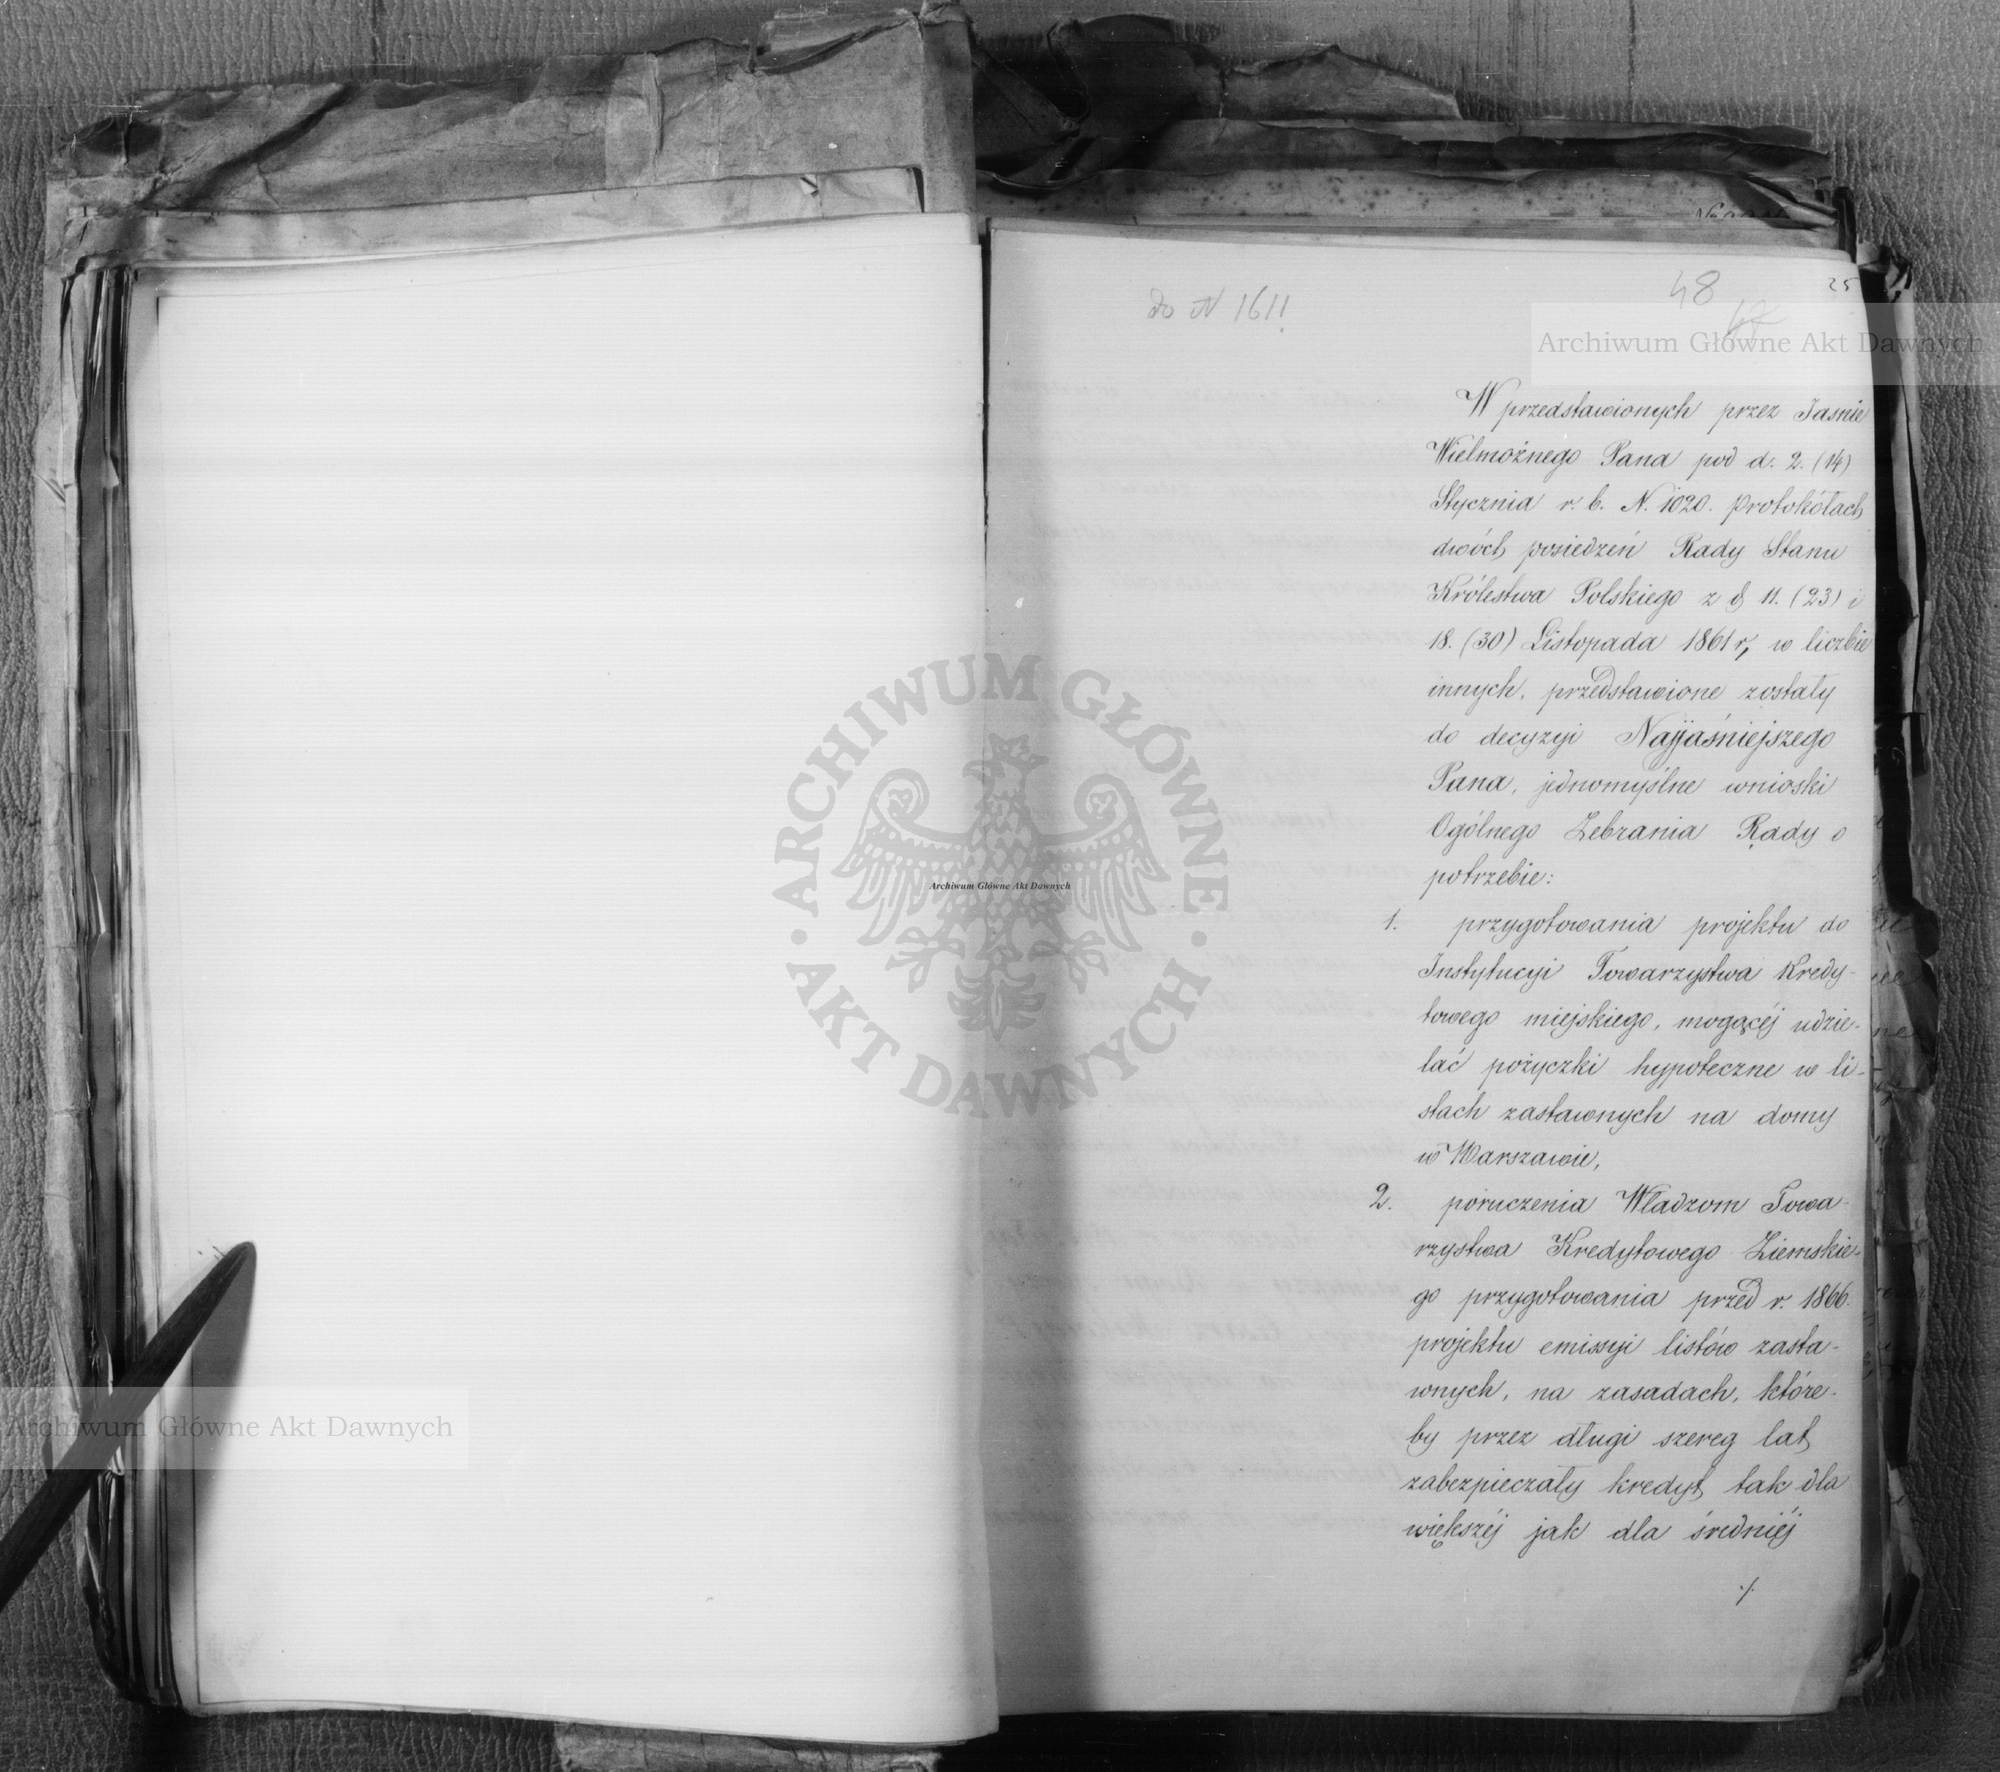 do N 1611
48
25
W przedstawionych przez Jasnie
Wielmożnego Pana pod d. 2. (14)
Stycznia r. b. N. 1020. Protokółach
dwóch posiedzeń Rady Stanu
Królestwa Polskiego z d 11. (23) i
18. (30) Listopada 1861 r, w liczbie
innych, przedstawione zostały
do decyzyi Najjaśniejszego
Pana, jednomyślne wnioski
Ogólnego Zebrania Rady o
potrzebie:
1. przygotowania projektu do
Instytucyi Towarzystwa Kredy-
towego miejskiego, mogącéj udzie-
lać pożyczki hypoteczne w li-
stach zastawnych na domy
w Warszawie,
2. poruczenia Władzom Towa-
rzystwa Kredytowego Ziemskie-
go przygotowania przed r. 1866.
projektu emissyi listów zasta-
wnych, na zasadach, które-
by przez długi szereg lat
zabezpieczały kredyt tak dla
większéj jak dla średniéj
./.
Archiwum Główne Akt Dawnych
Archiwum Główne Akt Dawnych
Archiwum Główne Akt Dawnych
ARCHIWUM GŁÓWNE
AKT DAWNYCH